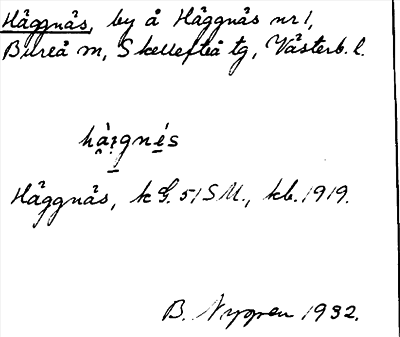 Häggnäs, by å Häggnäs nr 1,
Bureå m, Skellefteå tg, Västerb. l.
Häggnäs, k G. 51 S M., kb. 1919.
B. Nygren 1932.